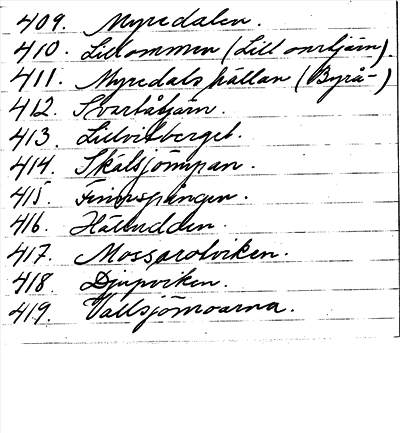 409. Myredalen.
410. Lillommen (Lill omtjärn).
411. Myredalskällan (Byrå-)
412. Svartåtjärn.
413. Lillvitberget.
414. Skålsjömpan.
415. Finnspången.
416. Hälludden.
417. Mossarotviken.
418. Djupviken.
419. Vallsjömoarna.